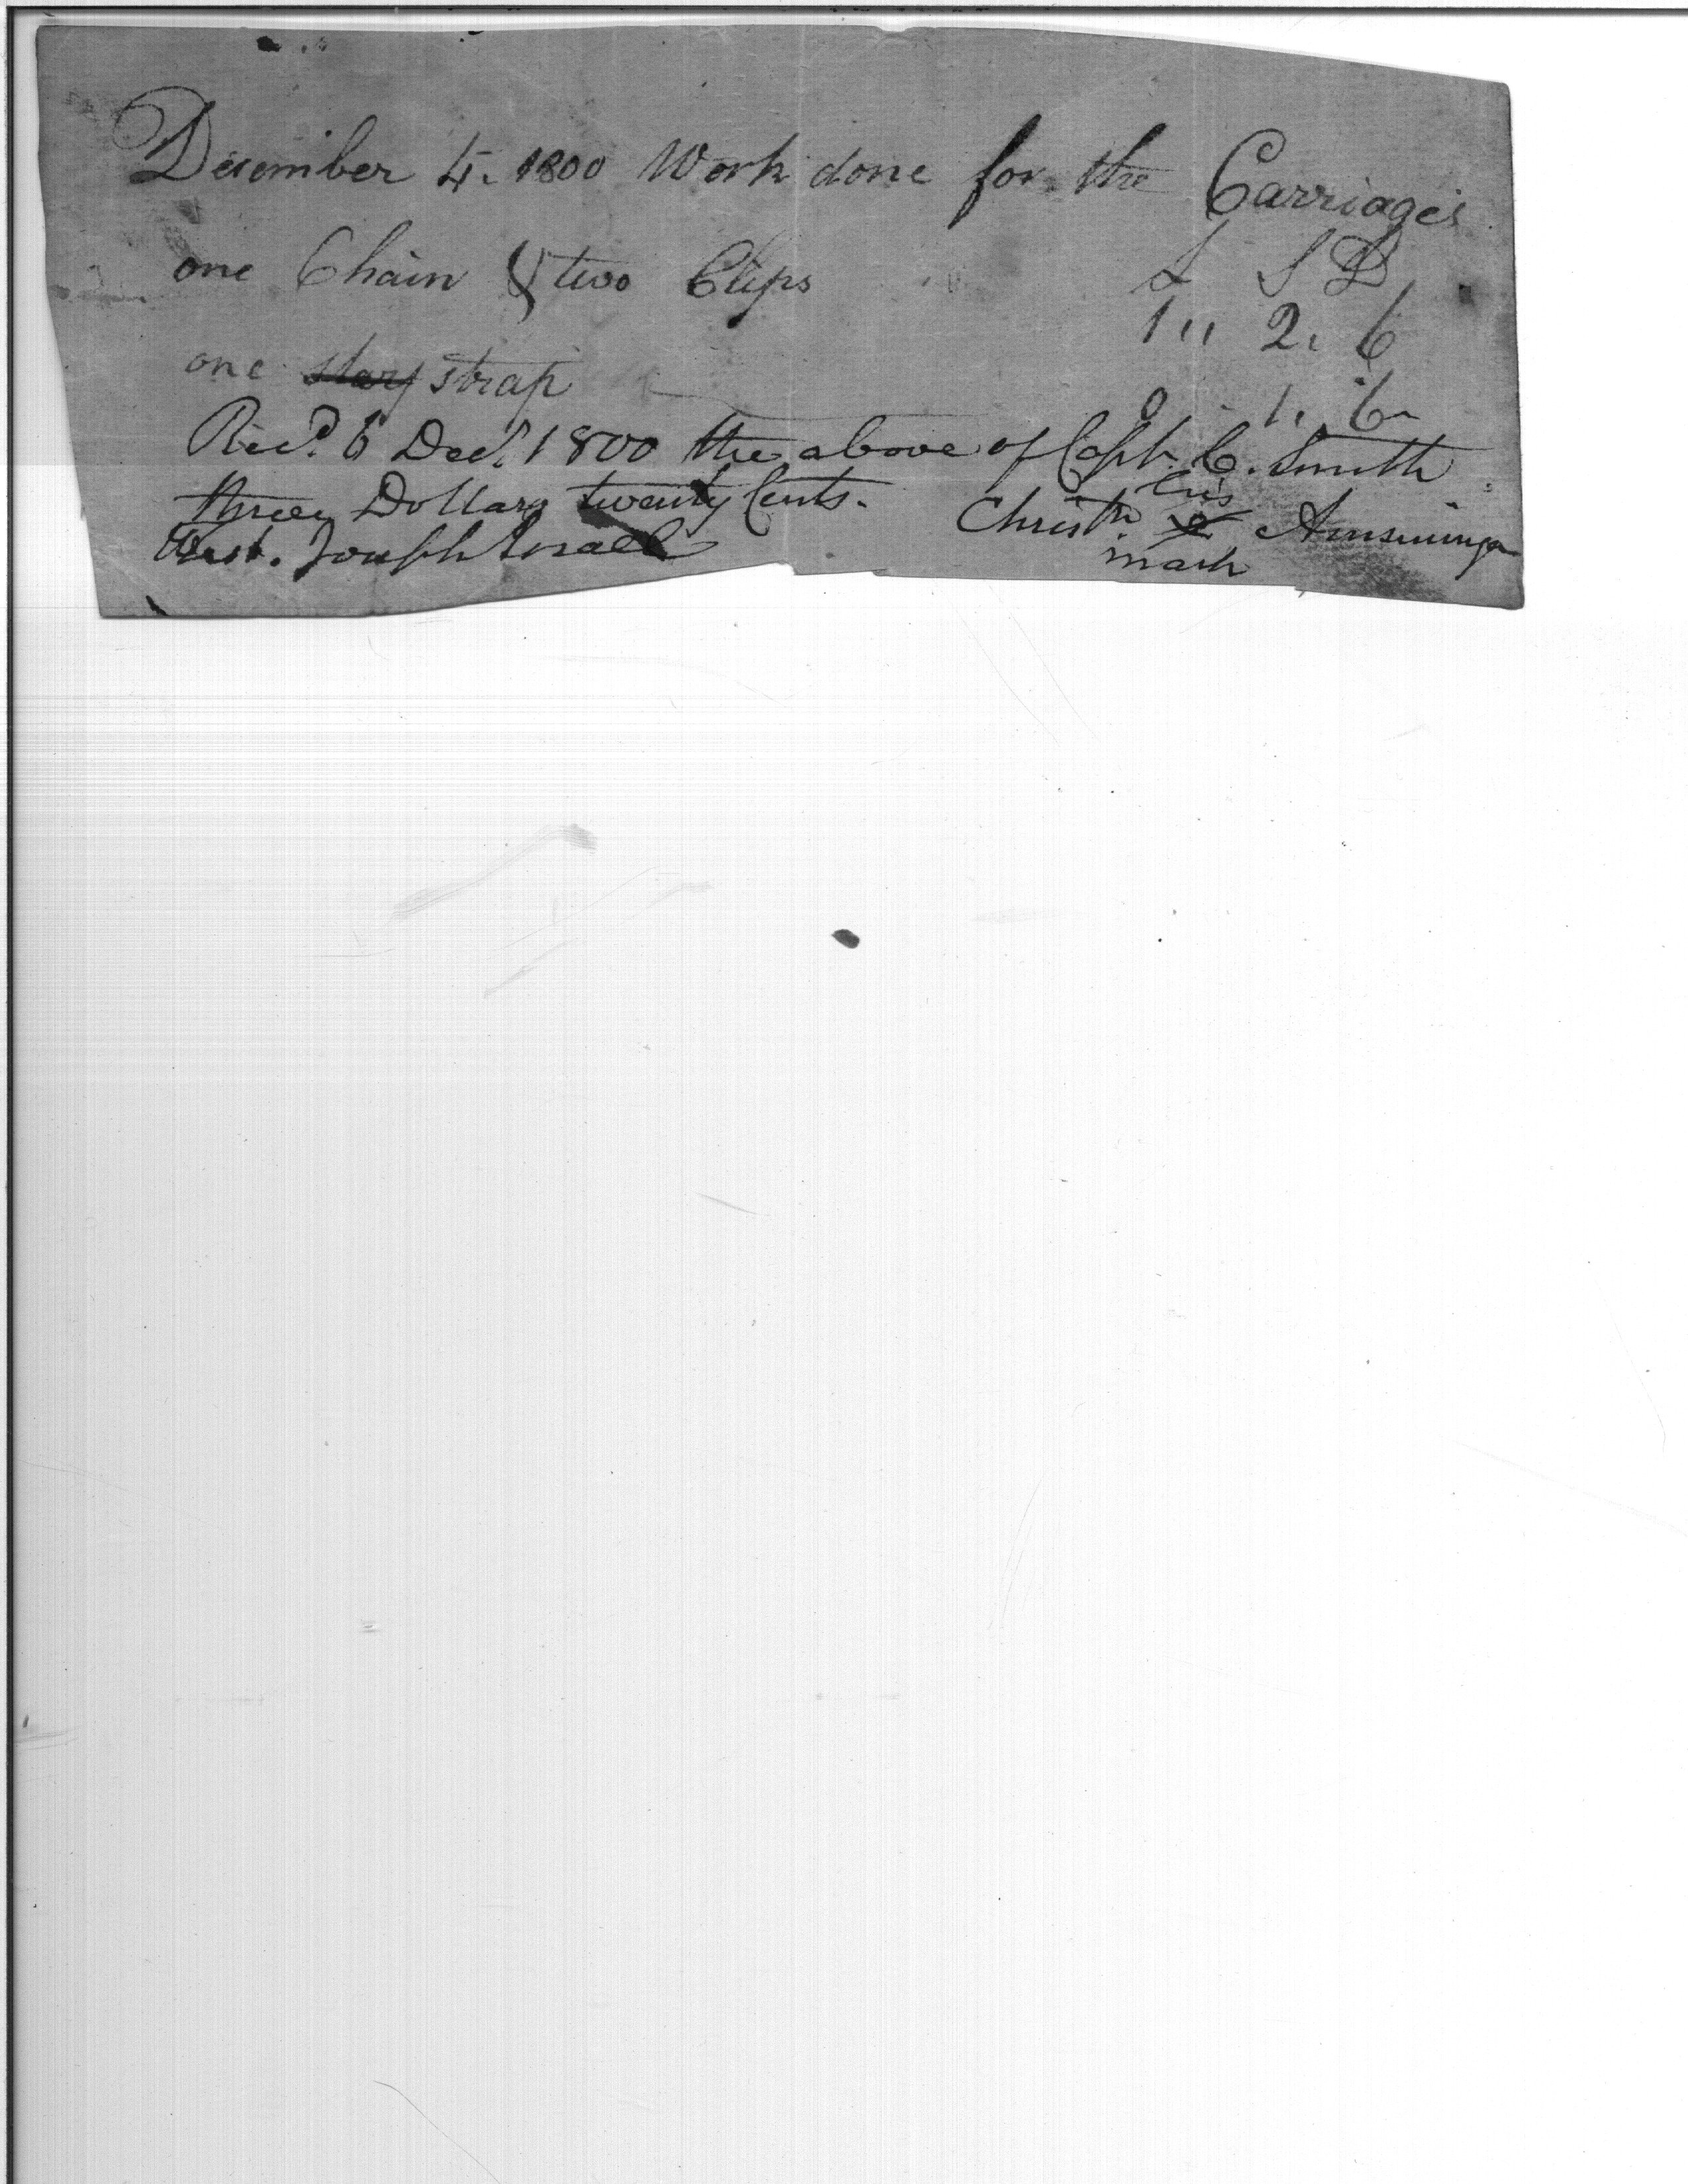 December 4. 1800 Work done for the Carriages
one Chain & two Clips L S D
1,, 2, 6
one strap 0 1, 6
Recd. 6 Decr. 1800 the above of Capt. C. Smith
three Dollars twenty Cents. Christn. his
Test. Joseph Israel mark